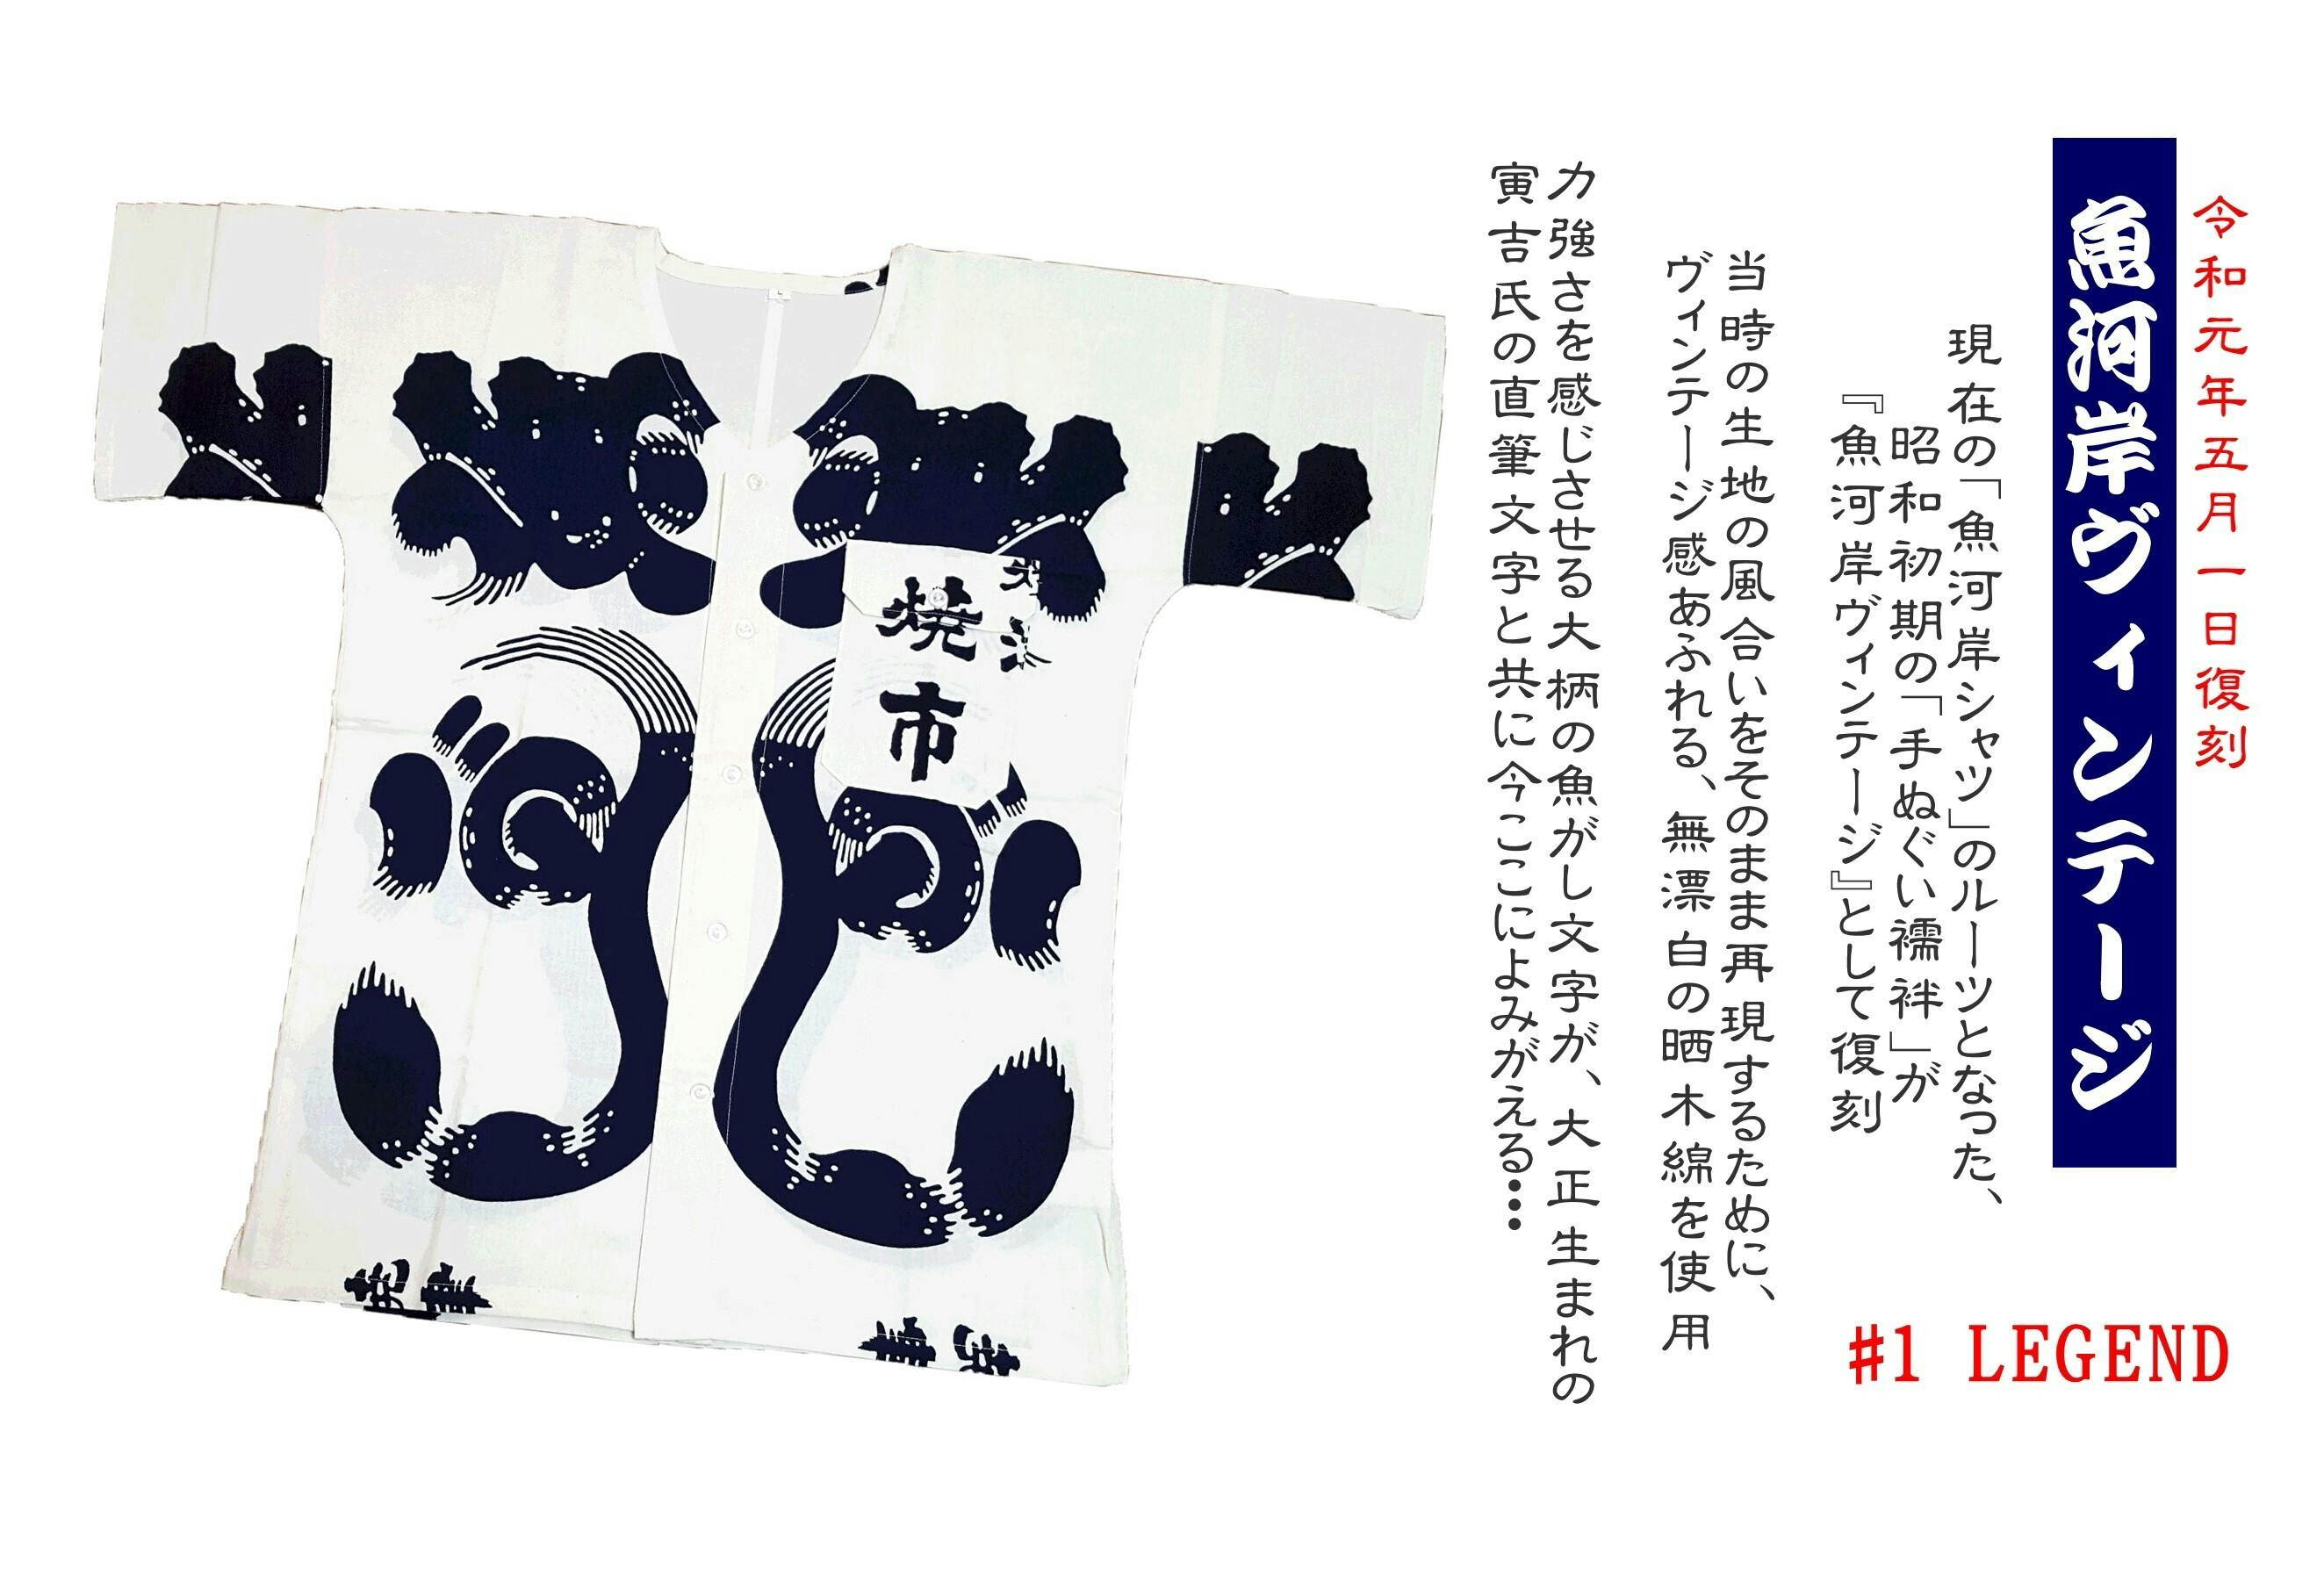 令和元年五月一日復刻
魚河岸ヴィンテージ
現在の「魚河岸シャツ」のルーツとなった、
昭和初期の「手ぬぐい襦袢」が
『魚河岸ヴィンテージ』として復刻
当時の生地の風合いをそのまま再現するために、
ヴィンテージ感あふれる、無漂白の晒木綿を使用
力強さを感じさせる大柄の魚がし文字が、大正生まれの
寅吉氏の直筆文字と共に今ここによみがえる・・・
#1 LEGEND
焼
市
L